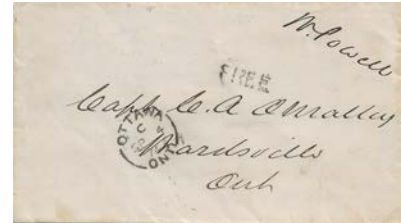 W. Powell
FREE
Capt C. A O'Malley
OTTAWA
ONT
Wardsville
Ont